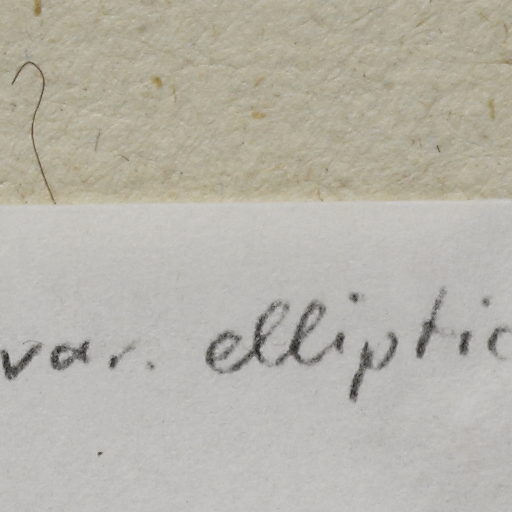 var. elliptic